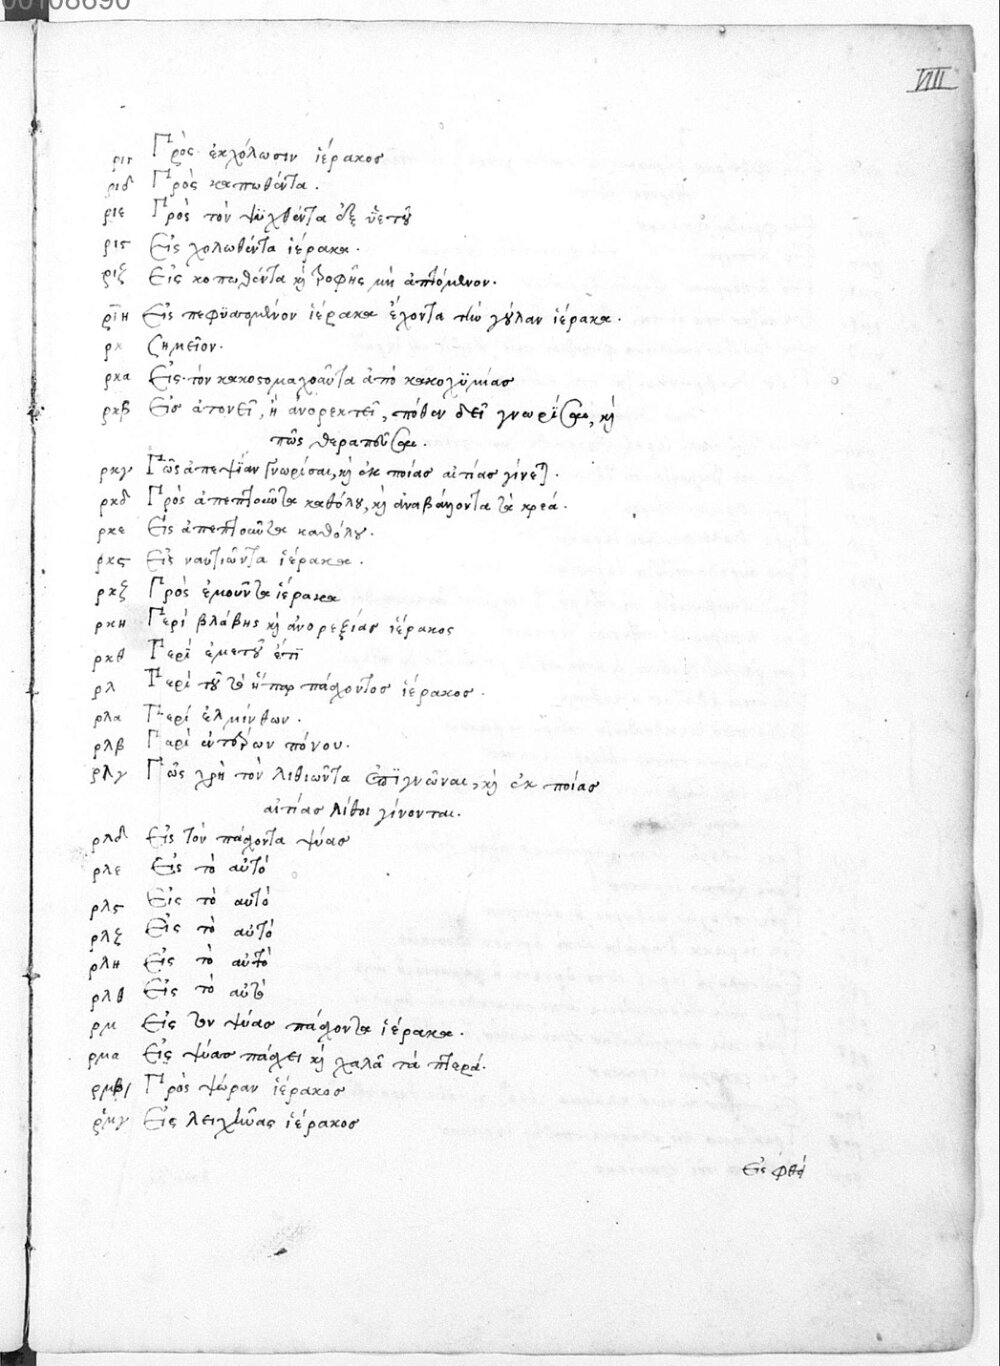 00108690
VIII
ριγ Πρὸς ἐκχόλωσιν ἱέρακος
ριδ Πρὸς καπωθέντα.
ριε Πρὸς τὸν ψυχθέντα ἐξ ὑετοῦ
ρις Εἰς χολωθέντα ἱέρακα.
ριζ Εἰς κοπωθέντα κὴ τροφῆς μὴ ἁπτόμενον.
ριη Εἰς πεφϋσημένον ἱέρακα ἔχοντα τὴν γύλαν ἱέρακα.
ρκ Σημεῖον.
ρκα Εἰς τὸν κακοστομαχοῦντα ἀπὸ κακοχϋμίας
ρκβ Εἰσ ἀπονεῖ, ἢ ἀνορεκτεῖ, πόθεν δεῖ γνωρίσαι, κὴ
πῶς θεραπεῦσαι.
ρκγ Πῶς ἀπεψίαν γνωρίσαι, κὴ ἐκ ποίασ αἰτίας γίνεται.
ρκδ Πρὸς ἀπεπτοῦντα καθόλου, κὴ ἀναβάλλοντα τὰ κρεά.
ρκε Εἰς ἀπεπτοῦντα καθόλου.
ρκς Εἰς ναυτιῶντα ἱέρακα.
ρκζ Πρὸς ἐμοῦντα ἱέρακα
ρκη Περὶ βλάβης κὴ ἀνορεξίας ἱέρακος
ρκθ Περὶ ἐμετοῦ ἔτι
ρλ Περὶ τοῦ τὸ ἧπαρ πάσχοντος ἱέρακος.
ρλα Περὶ ἑλμίνθων.
ρλβ Παρὶ ἐντέρων πόνου.
ρλγ Πῶς χρὴ τὸν λιθιῶντα ἐπϊγνῶναι, κὴ ἐκ ποίας
αἰτίασ λίθοι γίνονται.
ρλδ Εἰς τὸν πάσχοντα ψύας
ρλε Εἰς τὸ αὐτό
ρλς Εἰς τὸ αὐτό
ρλζ Εἰς τὸ αὐτό
ρλη Εἰς τὸ αὐτό
ρλθ Εἰς τὸ αὐτό
ρμ Εἰς τὸν ψύας πάσχοντα ἱέρακα.
ρμα Εἰς ψύας πάσχει κὴ χαλᾶ τὰ πτερά.
ρμβ Πρὸς ψώραν ἱέρακος
ρμγ Εἰς λειχῆνας ἱέρακος
Εἰς φθεί